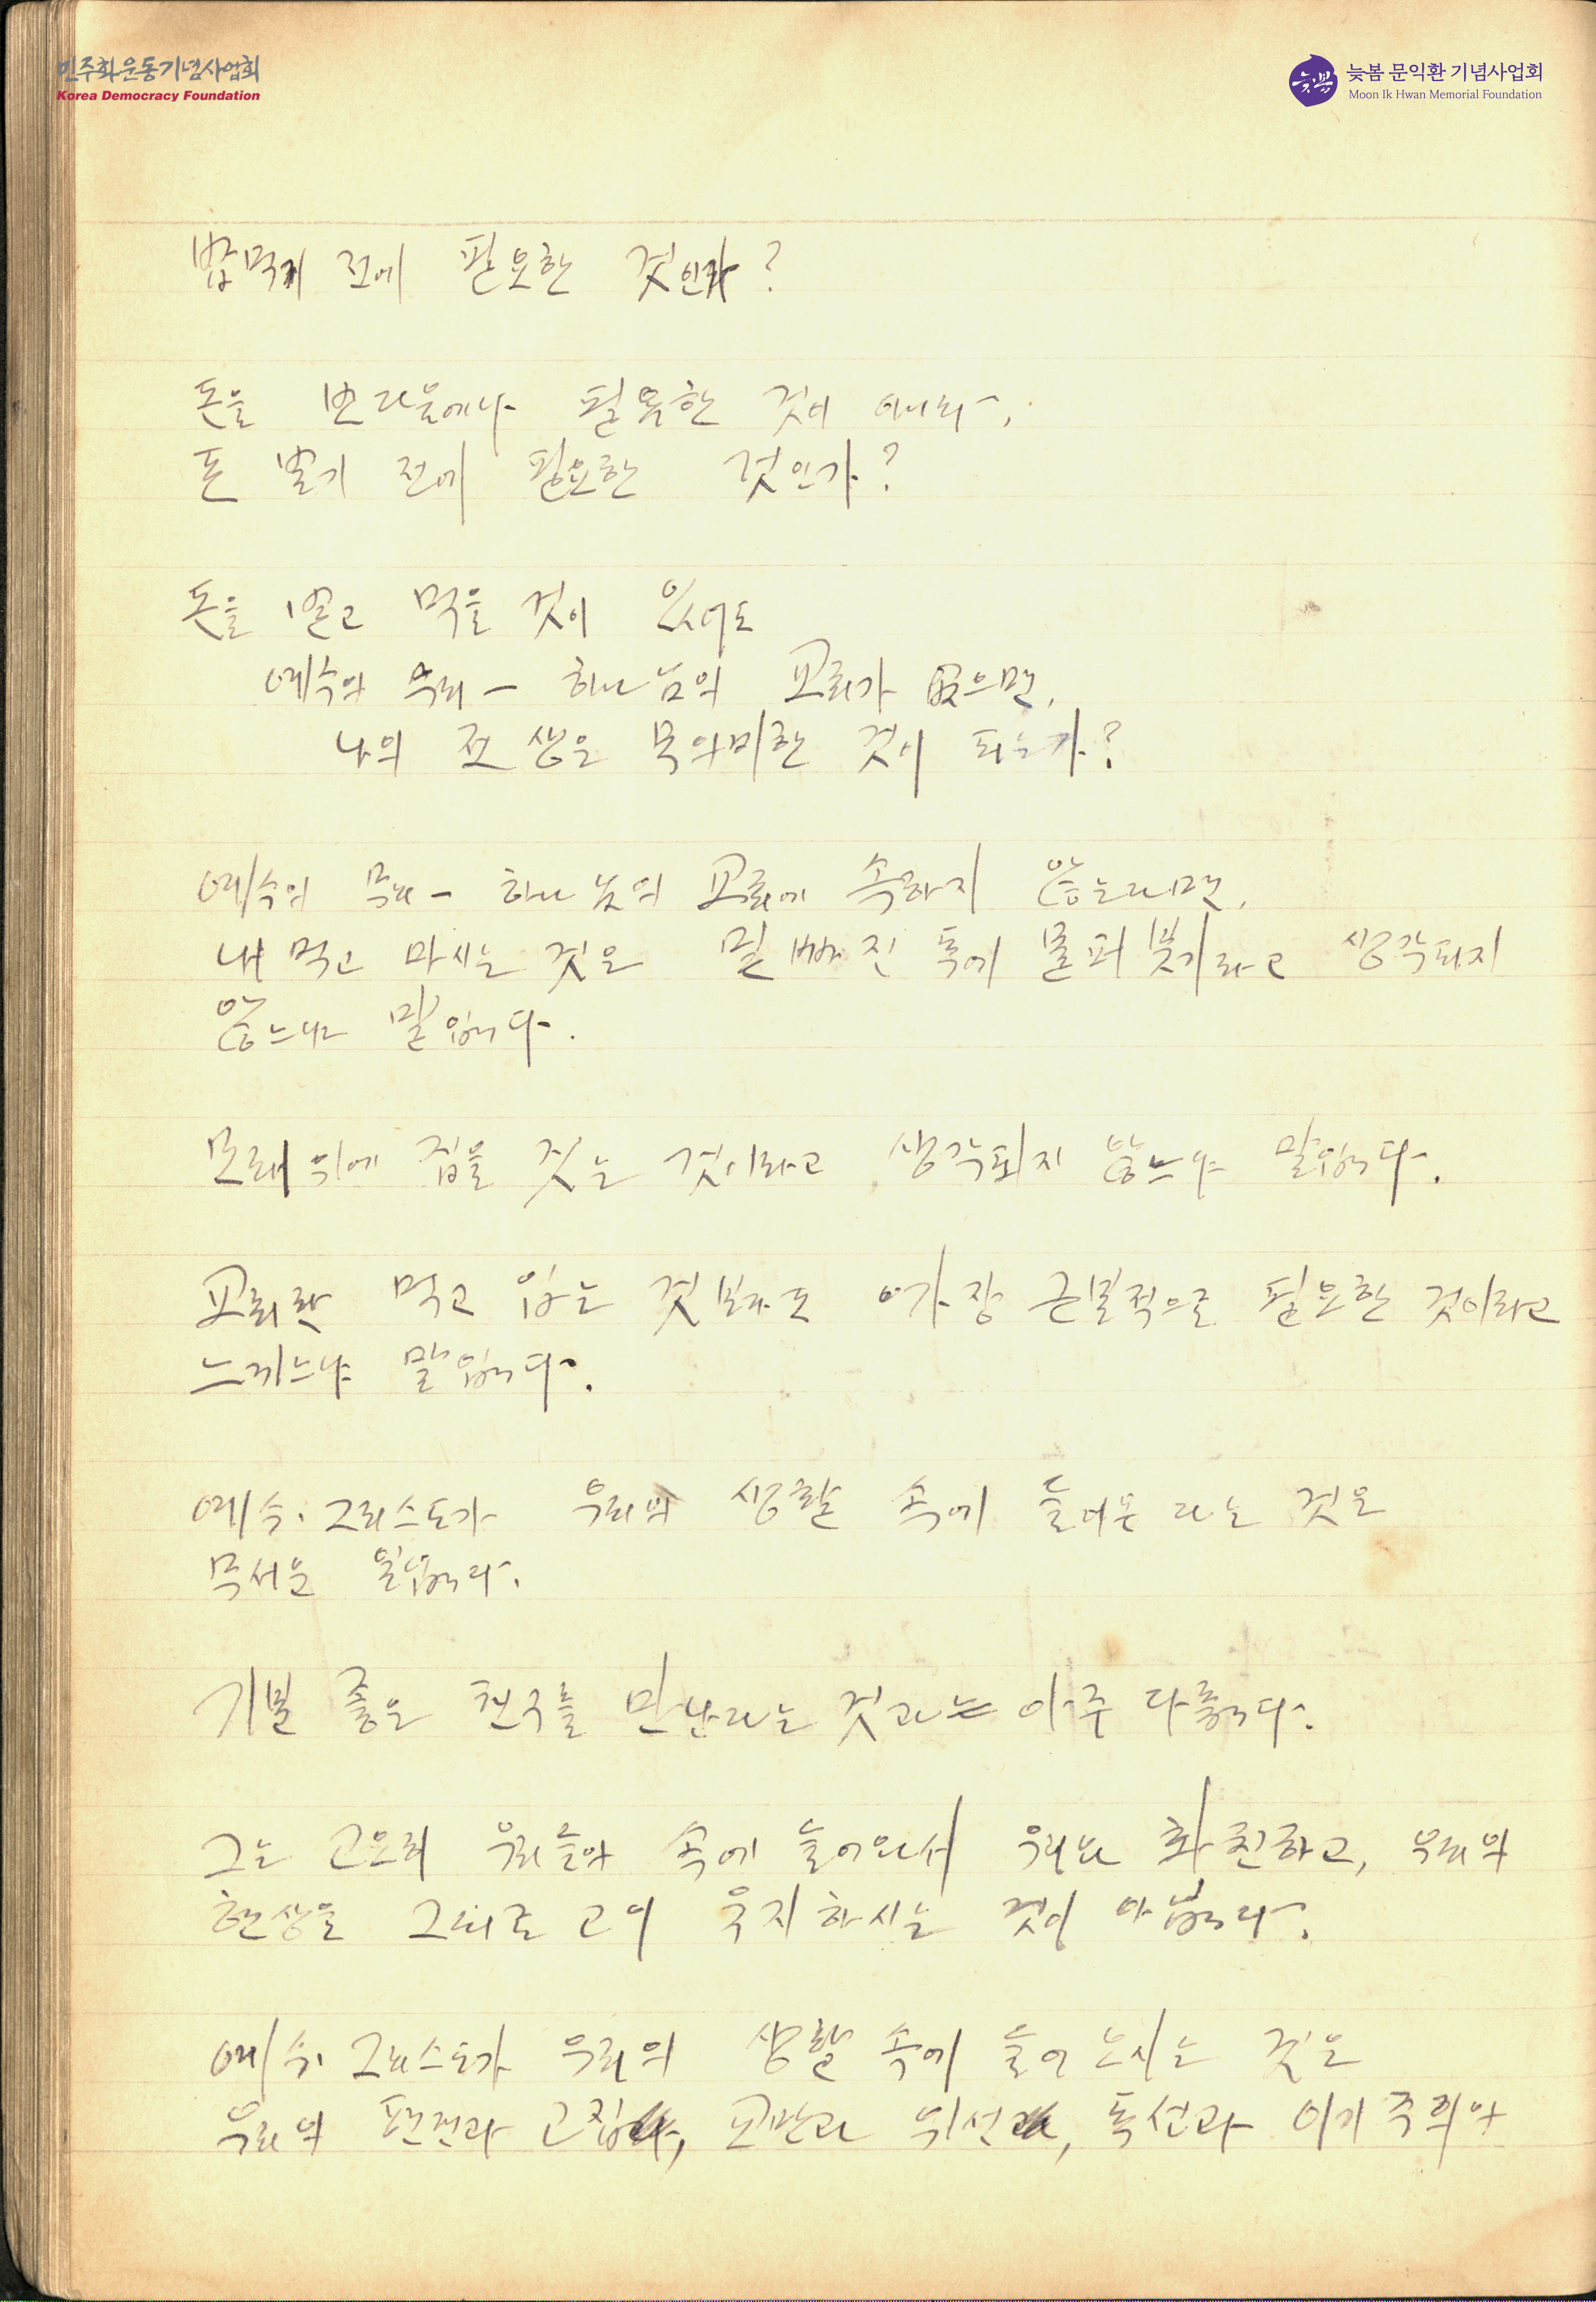 민주화운동기념사업회
Korea Democracy Foundation
늦봄 문익환 기념사업회
Moon Ik Hwan Memorial Foundation
밥먹기 전에 필요한 것인가?
돈을 번 다음에나 필요한 것이 아니라,
돈 벌기 전에 필요한 것인가?
돈을 벌고 먹을 것이 있어도
예수의 무리 — 하나님의 교회가 없으면,
나의 전 생은 무의미한 것이 되는가?
예수의 무리 — 하나님의 교회에 속하지 않는다면,
내 먹고 마시는 것은 밑 빠진 독에 물퍼붓기라고 생각되지
않느냐 말입니다.
모래 위에 집을 짓는 것이라고 생각되지 않느냐 말입니다.
교회란 먹고 입는 것보다도 가장 근본적으로 필요한 것이라고
느끼느냐 말입니다.
예수·그리스도가 우리의 생활 속에 들어온다는 것은
무서운 일입니다.
기분 좋은 친구를 만난다는 것과는 아주 다릅니다.
그는 고요히 우리들의 속에 들어와서 우리와 화친하고, 우리의
현상을 그대로 고이 유지하시는 것이 아닙니다.
예수·그리스도가 우리의 생활 속에 들어오시는 것은
우리의 편견과 고집, 교만과 위선, 독선과 이기주의와